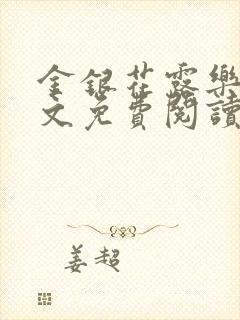 金銀花露樂
文免費閱讀
姜超